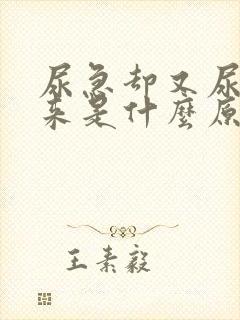 尿急却又尿
来是什麼原
王素毅